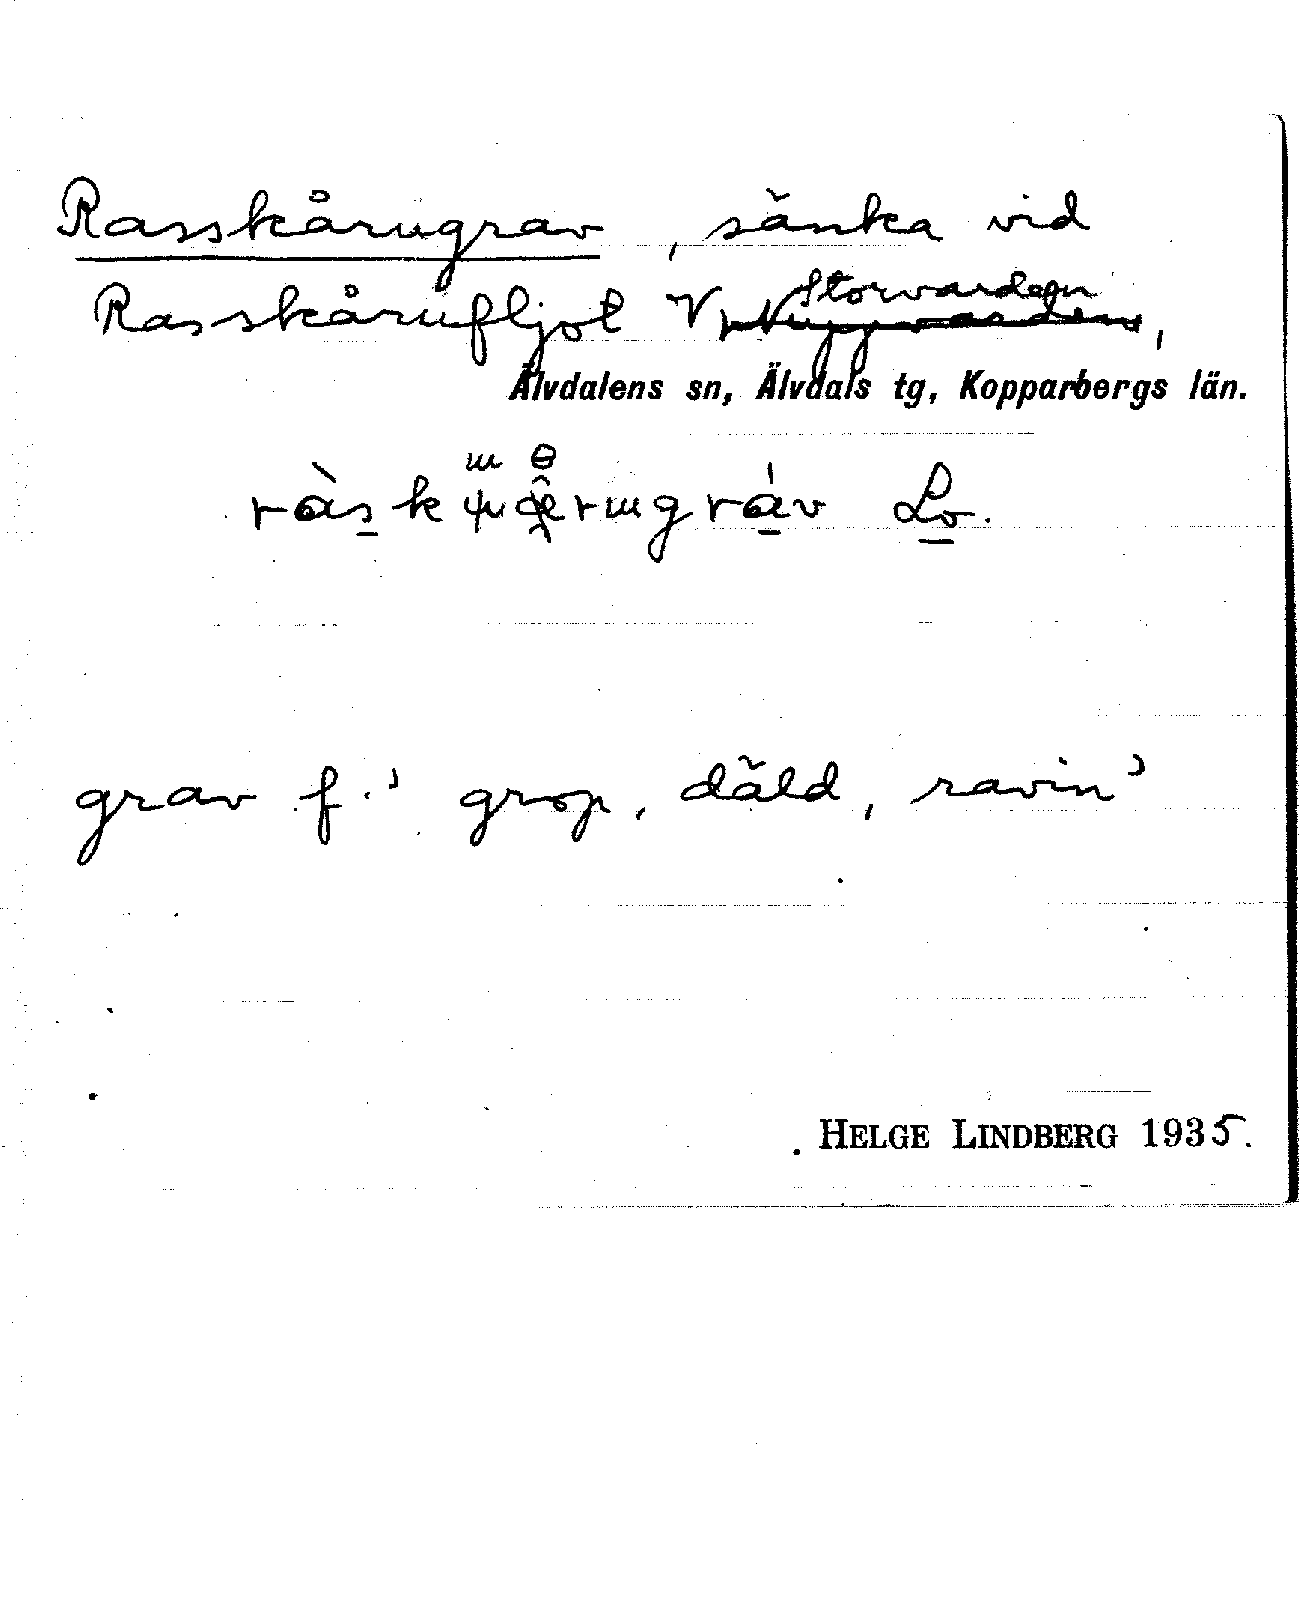 Rasskårugrav, sänka vid
Rasskårufljot V Storvarden,
Älvdalens sn, Älvdals tg, Kopparbergs län.
Lo.
grav f. 'grop, däld, ravin'
HELGE LINDBERG 1935.